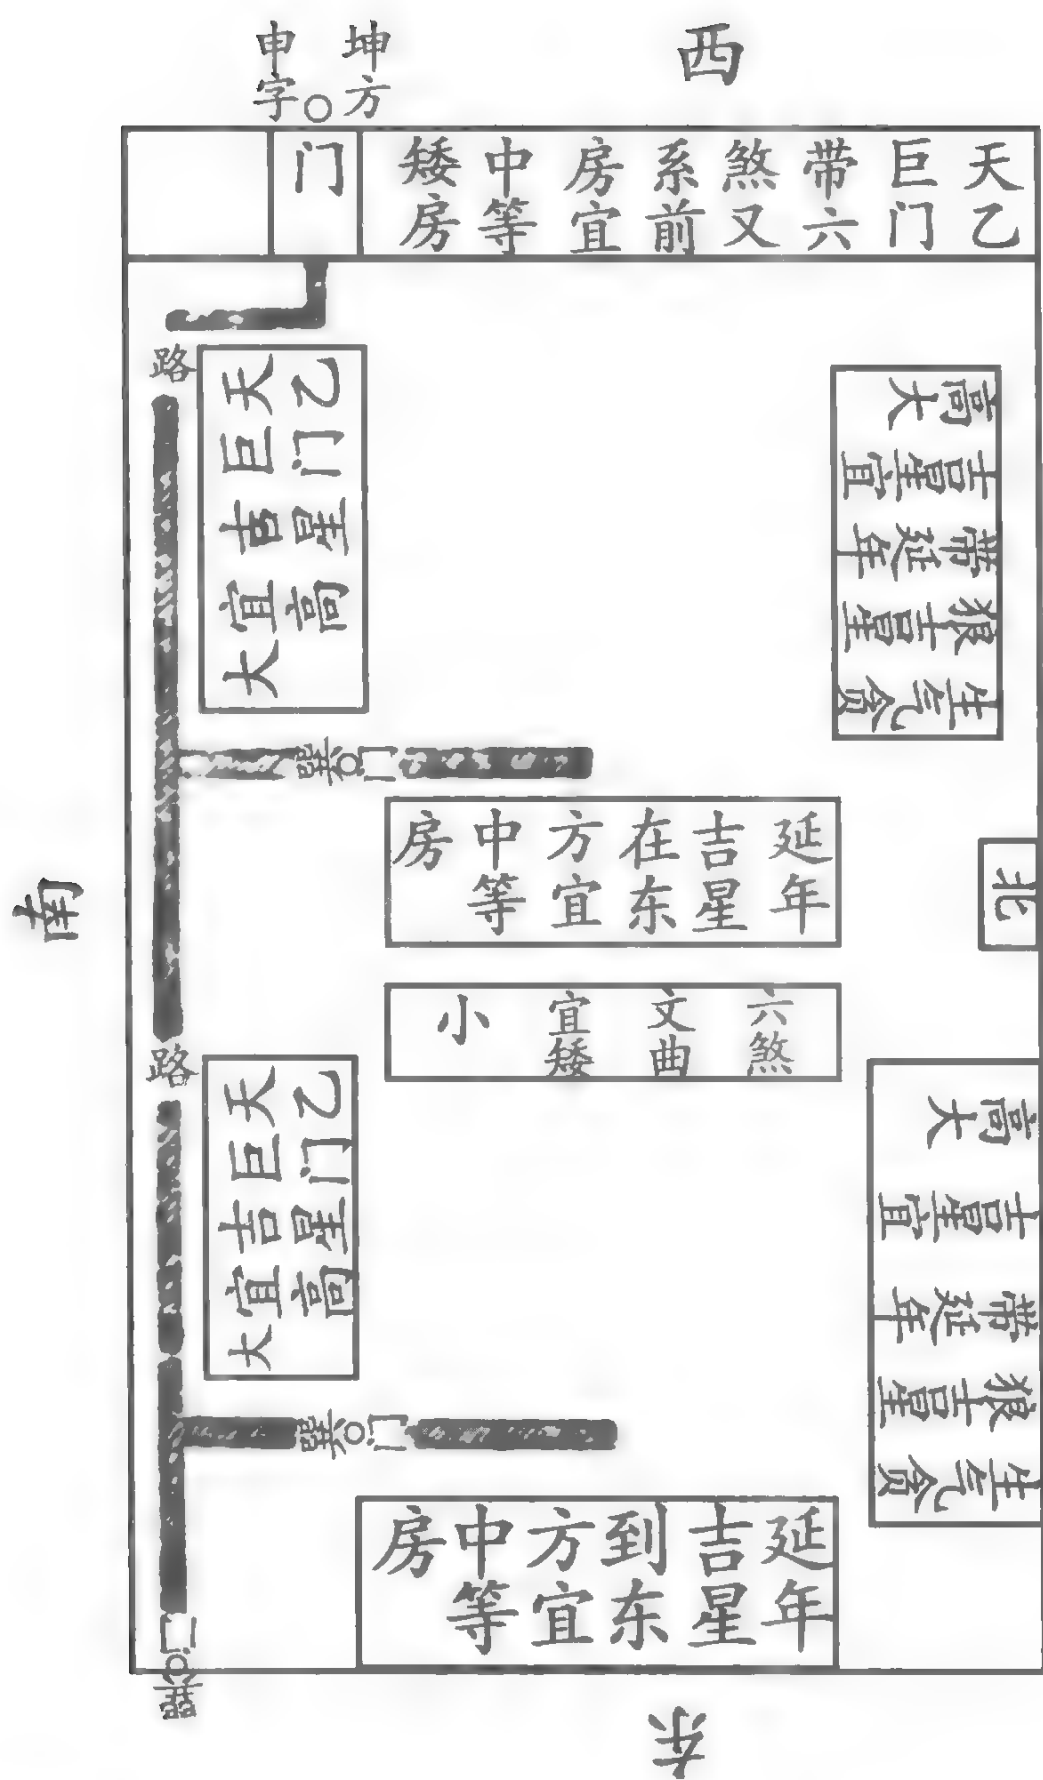 西
坤方
申字
天乙
巨门
带六
煞又
系前
房宜
中等
矮房
门
路
天乙
巨门
吉星
宜高
大
生气贪
狼吉星
带延年
吉星宜
高大
巽门
延年
吉星
在东
方宜
中等
房
南
北
六煞
文曲
宜矮
小
路
天乙
巨门
吉星
宜高
大
生气贪
狼吉星
带延年
吉星宜
高大
巽门
延年
吉星
到东
方宜
中等
房
门
巽
东